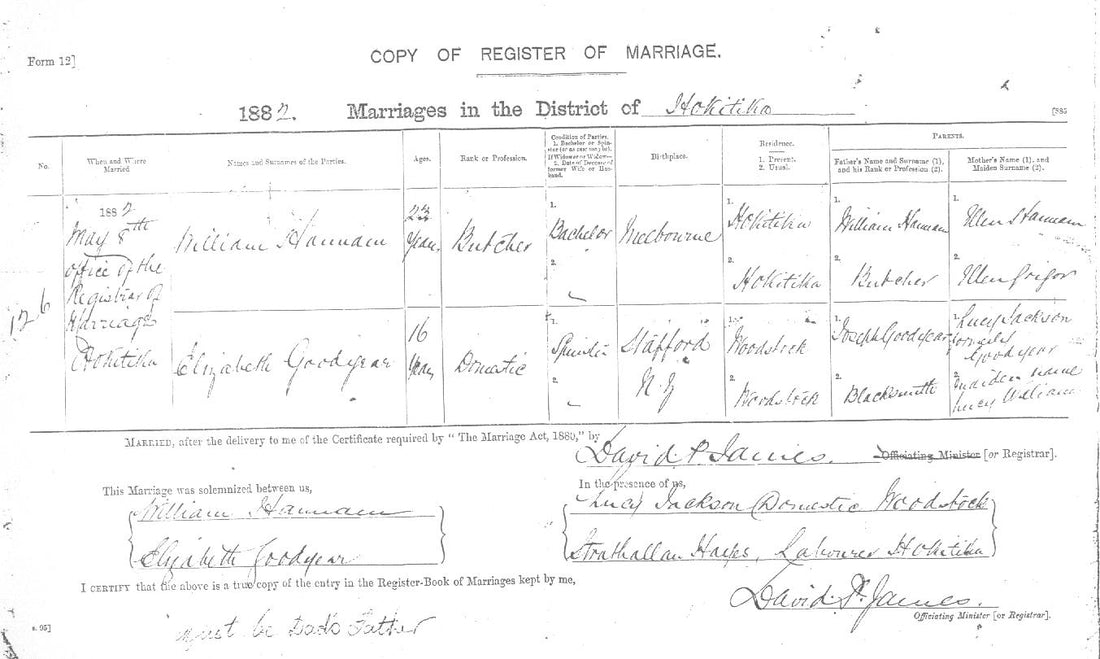 COPY OF REGISTER OF MARRIAGE.
Form 12]
1882. Marriages in the District of Hokitika
[885
No.
When and Where Married
Names and Surnames of the Parties.
Ages.
Rank or Profession.
Condition of Parties.
1. Bachelor or Spinster (or as case may be).
If Widower or Widow—
2. Date of Decease of former Wife or Husband.
Birthplace.
Residence.
1. Present.
2. Usual.
PARENTS.
Father's Name and Surname (1), and his Rank or Profession (2).
Mother's Name (1), and Maiden Surname (2).
126
1882
May 8th
office of the
Registrar of
Marriages
Hokitika
William Hannam
23
Years
Butcher
1.
Bachelor
2.
Melbourne
1. Hokitika
2. Hokitika
1. William Hannam
2. Butcher
1. Ellen Hannam
2. Ellen Grigor
Elizabeth Goodyear
16
Years
Domestic
1.
Spinster
2.
Stafford
N.Z
1. Woodstock
2. Woodstock
1. Joseph Goodyear
2. Blacksmith
1. Lucy Jackson
formerly
Goodyear
2. maiden name
Lucy William
MARRIED, after the delivery to me of the Certificate required by "The Marriage Act, 1880," by
David P. James. Officiating Minister [or Registrar].
This Marriage was solemnized between us,
William Hannam
Elizabeth Goodyear
In the presence of us,
Lucy Jackson Domestic Woodstock
Strathallan Hayes, Labourer Hokitika
I CERTIFY that the above is a true copy of the entry in the Register-Book of Marriages kept by me,
David P. James.
Officiating Minister [or Registrar].
s. 95]
must be Dad's Father